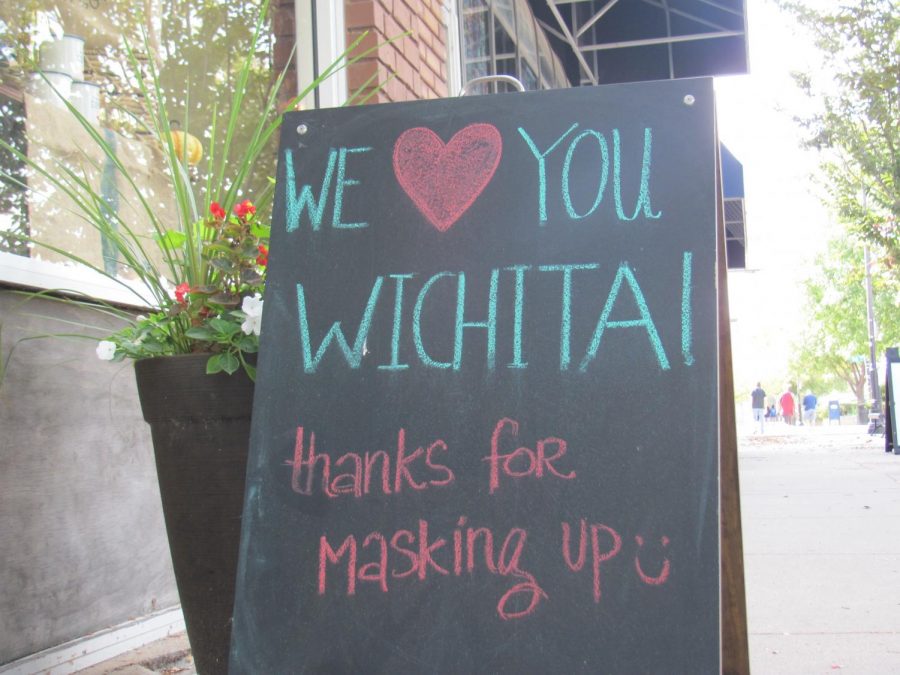 WE ❤ YOU
WICHITA!
thanks for
masking up :)